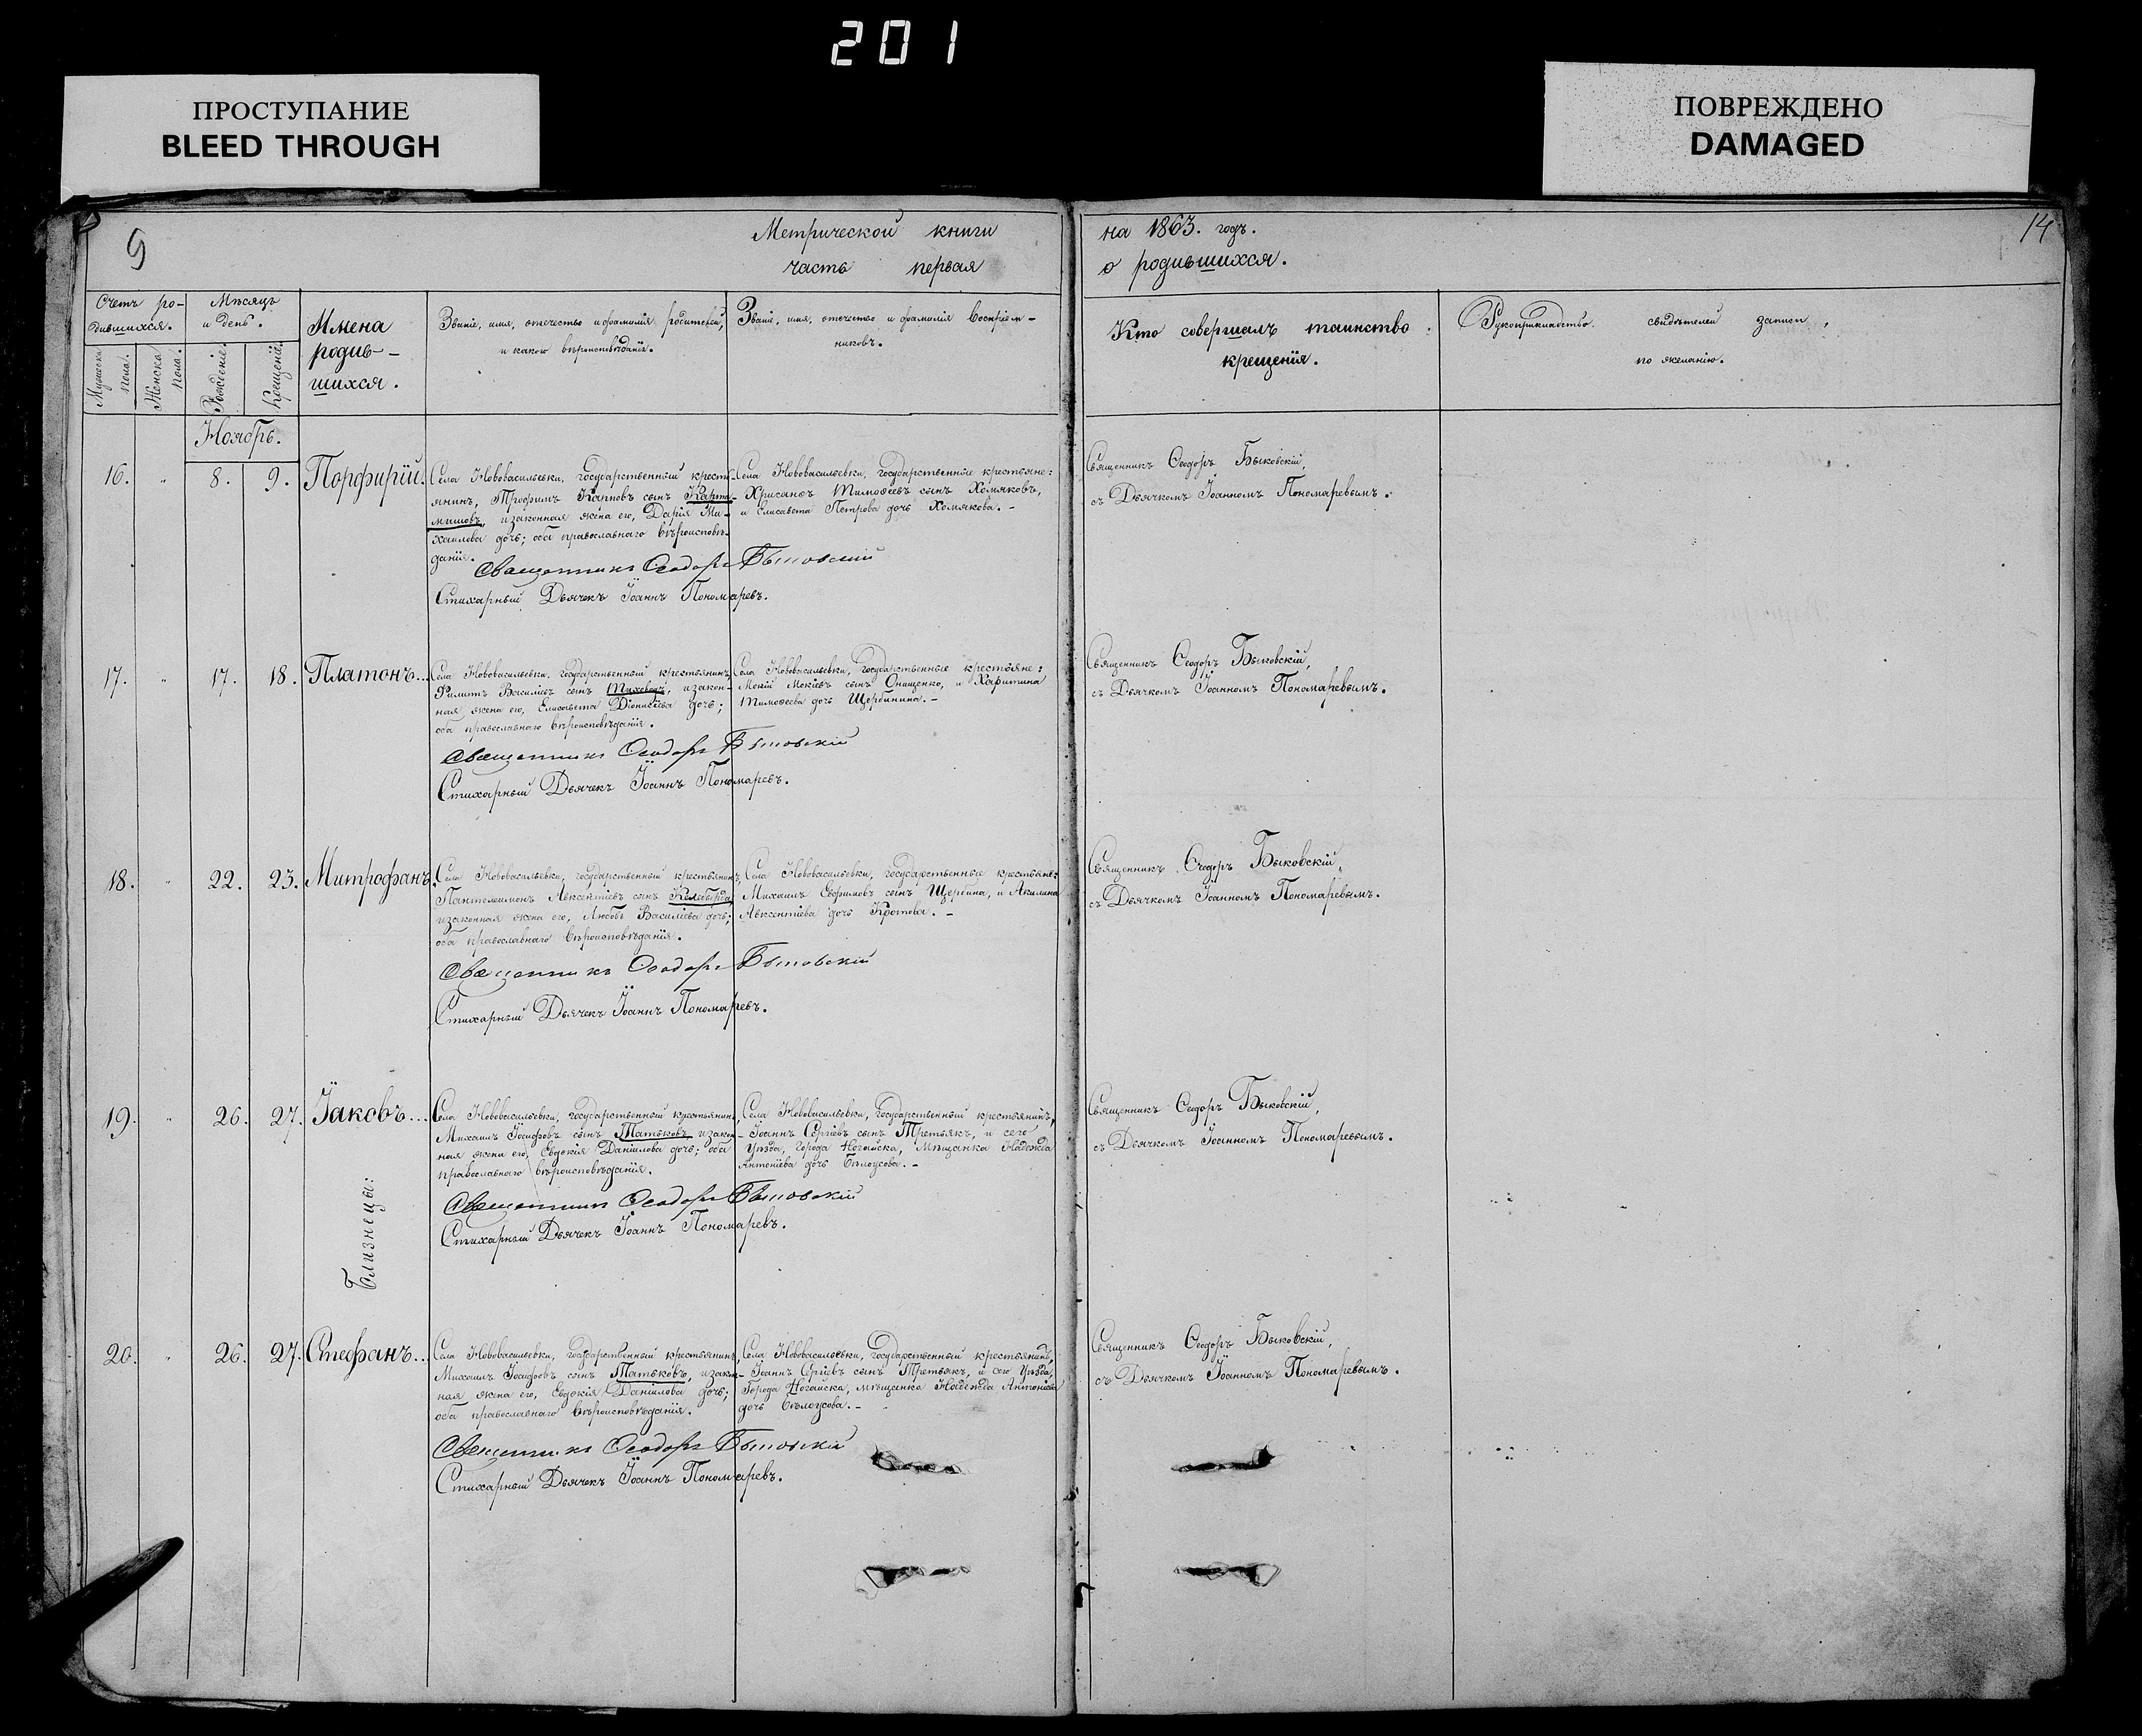 201
ПРОСТУПАНИЕ
BLEED THROUGH
ПОВРЕЖДЕНО
DAMAGED
9
Метрической книги
часть первая
на 1863. годъ.
о родившихся.
14
Счетъ ро-
дившихся.
Мѣсяцъ
и день.
Имена
родив-
шихся.
Званіе, имя, отечество и фамилія родителей,
и какого вѣроисповѣданія.
Званіе, имя, отечество и фамилія восприем-
никовъ.
Кто совершалъ таинство
крещенія.
Рукоприкладство свидѣтелей записи
по желанію.
Мужеска
пола.
Женска
пола.
Рожденіе.
Крещеніе.
Ноябрь.
16. " 8. 9. Порфирій.
Села Нововасильевки, государственный кресть-
янинъ, Трофимъ Карповъ сынъ Карта-
мишовъ, и законная жена его, Дарія Ми-
хаилова дочь; оба православнаго вѣроисповѣ-
данія.
Села Нововасильевки, государственные крестьяне:
Хрисанѳъ Тимоѳеевъ сынъ Хомяковъ,
и Елисавета Петрова дочь Хомякова. -
Священникъ Ѳеодоръ Быковскій
Стихарный Дьячекъ Іоаннъ Пономаревъ.
Священникъ Ѳеодоръ Быковскій,
съ Дьячкомъ Іоанномъ Пономаревымъ.
17. " 17. 18. Платонъ...
Села Нововасильевки, государственный крестьянинъ,
Филиппъ Василіевъ сынъ , и закон-
ная жена его, Елисавета Діонисіева дочь;
оба православнаго вѣроисповѣданія.
Села Нововасильевки, государственные крестьяне:
Мокій Мокіевъ сынъ Онищенко, и Харитина
Тимоѳеева дочь Щербинина. -
Священникъ Ѳеодоръ Быковскій
Стихарный Дьячекъ Іоаннъ Пономаревъ.
Священникъ Ѳеодоръ Быковскій,
съ Дьячкомъ Іоанномъ Пономаревымъ.
18. " 22. 23. Митрофанъ.
Села Нововасильевки, государственный крестьянинъ,
Пантелеимонъ Авксентіевъ сынъ Келеберда,
и законная жена его, Любовь Василіева дочь;
оба православнаго вѣроисповѣданія.
Села Нововасильевки, государственные крестьяне:
Михаилъ Евфимовъ сынъ Щербина, и Акилина
Авксентіева дочь Кротова. -
Священникъ Ѳеодоръ Быковскій
Стихарный Дьячекъ Іоаннъ Пономаревъ.
Священникъ Ѳеодоръ Быковскій,
съ Дьячкомъ Іоанномъ Пономаревымъ.
19. " 26. 27. Іаковъ...
Села Нововасильевки, государственный крестьянинъ,
Михаилъ Іосифовъ сынъ Татьковъ, и закон-
ная жена его, Евдокія Даніилова дочь; оба
православнаго вѣроисповѣданія.
Села Нововасильевки, государственный крестьянинъ,
Іоаннъ Сергіевъ сынъ Третьякъ, и сего
Уѣзда, города Ногайска, Мѣщанка Надежда
Антоніева дочь Бѣлоусова. -
Священникъ Ѳеодоръ Быковскій
Стихарный Дьячекъ Іоаннъ Пономаревъ.
Священникъ Ѳеодоръ Быковскій,
съ Дьячкомъ Іоанномъ Пономаревымъ.
Близнецы:
20. " 26. 27. Стефанъ...
Села Нововасильевки, государственный крестьянинъ,
Михаилъ Іосифовъ сынъ Татьковъ, и закон-
ная жена его, Евдокія Даніилова дочь;
оба православнаго вѣроисповѣданія.
Села Нововасильевки, государственный крестьянинъ,
Іоаннъ Сергіевъ сынъ Третьякъ, и сего Уѣзда,
Города Ногайска, мѣщанка Надежда Антоніева
дочь Бѣлоусова. -
Священникъ Ѳеодоръ Быковскій
Стихарный Дьячекъ Іоаннъ Пономаревъ.
Священникъ Ѳеодоръ Быковскій,
съ Дьячкомъ Іоанномъ Пономаревымъ.